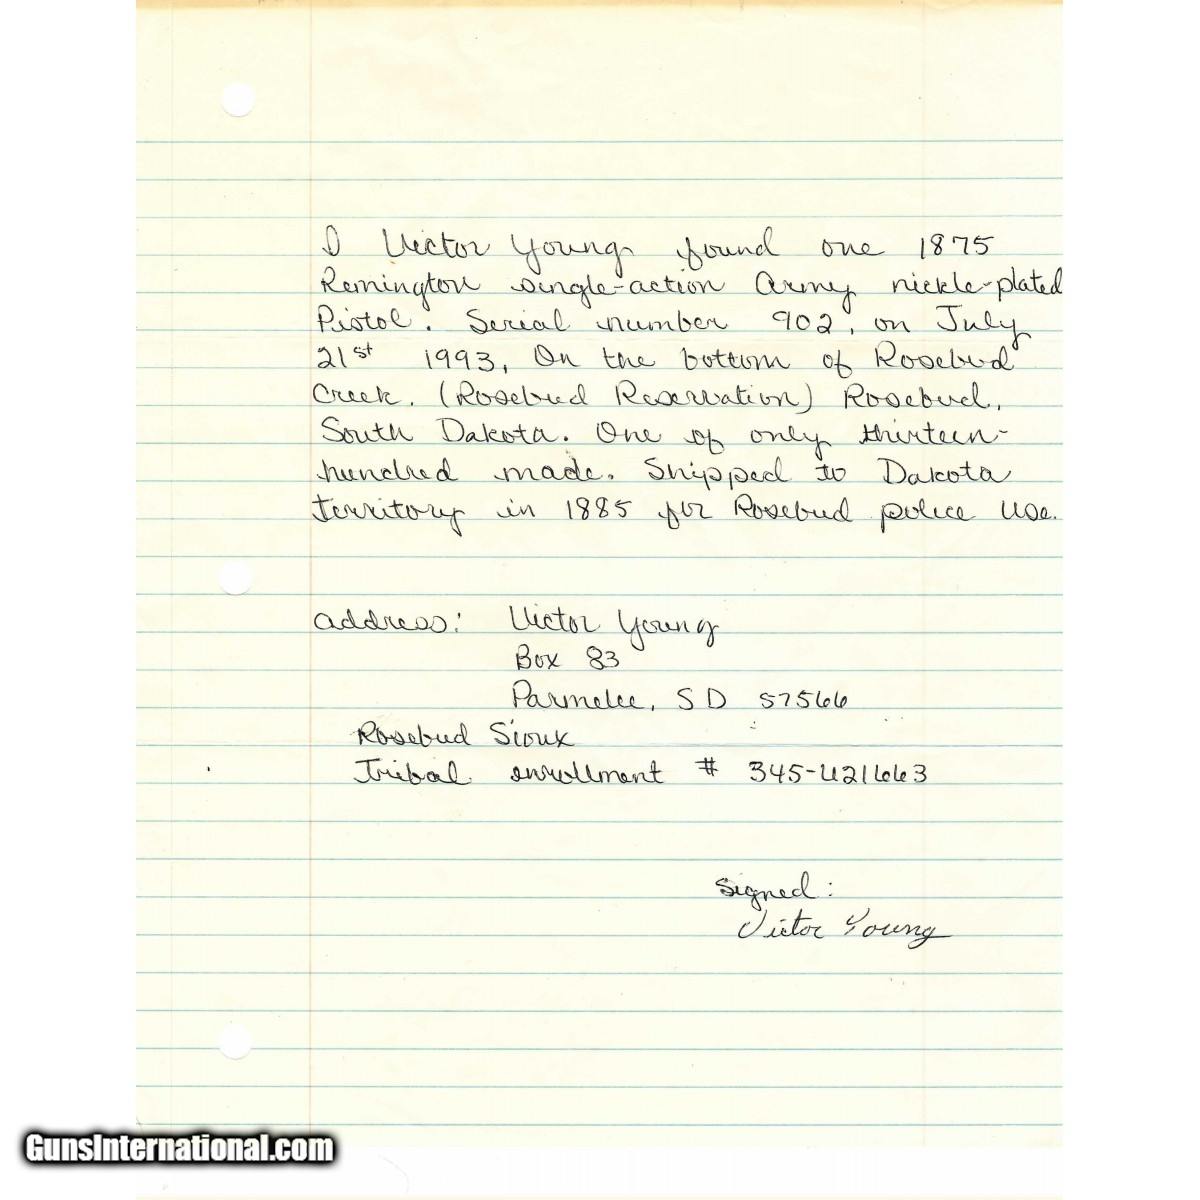 I Victor Young found one 1875
Remington single-action Army nickle-plated
Pistol. Serial number 902, on July
21st 1993, On the bottom of Rosebud
Creek. (Rosebud Reservation) Rosebud,
South Dakota. One of only thirteen-
hundred made. Shipped to Dakota
Territory in 1885 for Rosebud police use.
address: Victor Young
Box 83
Parmelee, SD 57566
Rosebud Sioux
Tribal enrollment # 345-U21663
Signed:
Victor Young
GunsInternational.com